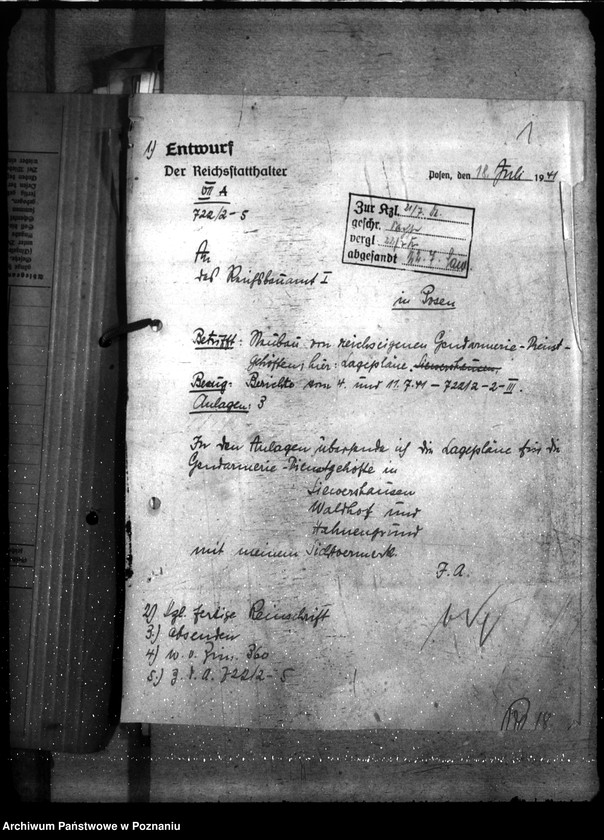 1
1) Entwurf
Der Reichsstatthalter
VII A
722/2-5
Posen, den 18. Juli 1941
Zur Kzl. 21/7.
geschr.
vergl.
abgesandt 22.7.
An
das Reichsbauamt I
in Posen
Betrifft: Neubau von reichseigenen Gendarmerie-Dienst-
gehöften; hier: Lagepläne Siewershausen.
Bezug: Berichte vom 4. und 11.7.41 – 722/2-2-III.
Anlagen: 3
In den Anlagen übersende ich die Lagepläne für die
Gendarmerie-Dienstgehöfte in
Siewershausen
Waldhof und
Hahnengrund
mit meinem Sichtvermerk.
J.A.
2) Kzl. fertige Reinschrift
3.) absenden
4) w.v. Zim. 360
5.) z.d.A. 722/2-5
18.
Archiwum Państwowe w Poznaniu